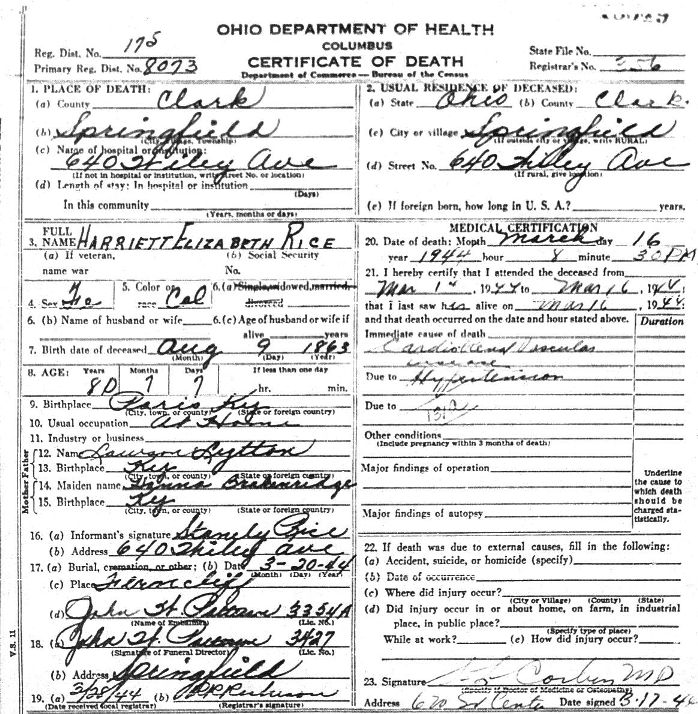 OHIO DEPARTMENT OF HEALTH
COLUMBUS
CERTIFICATE OF DEATH
Department of Commerce—Bureau of the Census
Reg. Dist. No. 175
Primary Reg. Dist. No. 8073
State File No.
Registrar's No. 356
1. PLACE OF DEATH:
(a) County Clark
(b) Springfield
(City, Village, Township)
(c) Name of hospital or institution:
640 Wiley Ave
(If not in hospital or institution, write street No. or location)
(d) Length of stay: In hospital or institution
(Days)
In this community
(Years, months or days)
2. USUAL RESIDENCE OF DECEASED:
(a) State Ohio (b) County Clark
(c) City or village Springfield
(If outside city or village, write RURAL)
(d) Street No. 640 Wiley Ave
(If rural, give location)
(e) If foreign born, how long in U. S. A.? years.
3. FULL NAME HARRIETT ELIZABETH RICE
(a) If veteran, name war
(b) Social Security No.
4. Sex Fe
5. Color or race Col
6. (a) Single, widowed, married, divorced
6. (b) Name of husband or wife
6. (c) Age of husband or wife if alive years
7. Birth date of deceased Aug 9 1863
(Month) (Day) (Year)
8. AGE: Years Months Days If less than one day
80 7 7 hr. min.
9. Birthplace Paris Ky
(City, town, or county) (State or foreign country)
10. Usual occupation At Home
11. Industry or business
Father
12. Name Lytton
13. Birthplace Ky
(City, town, or county) (State or foreign country)
Mother
14. Maiden name
15. Birthplace Ky
(City, town, or county) (State or foreign country)
16. (a) Informant's signature Stanely Rice
(b) Address 640 Wiley Ave
17. (a) Burial, cremation, or other; (b) Date 3-20-44
(Month) (Day) (Year)
(c) Place Ferncliff
(d) John W. 3354A
(Name of Embalmer) (Lic. No.)
18. (a) John W. 3427
(Signature of Funeral Director) (Lic. No.)
(b) Address Springfield
19. (a) 3/28/44 (b)
(Date received local registrar) (Registrar's signature)
V.S. 11
MEDICAL CERTIFICATION
20. Date of death: Month March day 16
year 1944 hour 8 minute 30 PM
21. I hereby certify that I attended the deceased from
Mar 1st, 1944 to Mar 16, 1944
that I last saw her alive on Mar 16, 1944
and that death occurred on the date and hour stated above.
Duration
Immediate cause of death
Cardio Renal Vascular
disease
Due to Hypertension
Due to
131a
Other conditions
(Include pregnancy within 3 months of death)
Major findings of operation
Major findings of autopsy
Underline the cause to which death should be charged statistically.
22. If death was due to external causes, fill in the following:
(a) Accident, suicide, or homicide (specify)
(b) Date of occurrence
(c) Where did injury occur?
(City or Village) (County) (State)
(d) Did injury occur in or about home, on farm, in industrial
place, in public place?
(Specify type of place)
While at work? (e) How did injury occur?
23. Signature Corbin MD
(Specify if Doctor of Medicine or Osteopathy)
Address Date signed 3-17-44